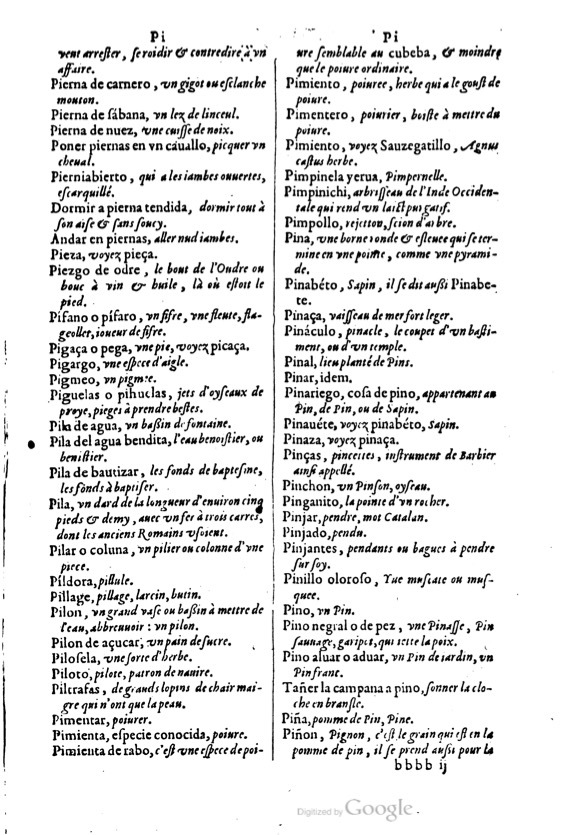 Pi
vent arrester, se roidir & contredire à vn
affaire.
Pierna de carnero, vn gigot ou esclanche
mouton.
Pierna de sábana, vn lez de linceul.
Pierna de nuez, vne cuisse de noix.
Poner piernas en vn cauallo, picquer vn
cheual.
Pierniabierto, qui a les iambes ouuertes,
escarquillé.
Dormir a pierna tendida, dormir tout à
son aise & sans soucy.
Andar en piernas, aller nud iambes.
Pieza, voyez pieça.
Piezgo de odre, le bout de l'Oudre ou
bouc à vin & huile, là où estoit le
pied.
Pífano o pífaro, vn fifre, vne fleute, fla-
geollet, ioueur de fifre.
Pigaça o pega, vne pie, voyez picaça.
Pigargo, vne espece d'aigle.
Pigmeo, vn pigmee.
Piguelas o pihuelas, jets d'oyseaux de
proye, pieges à prendre bestes.
Pila de agua, vn bassin de fontaine.
Pila del agua bendita, l'eau benoistier, ou
benistier.
Pila de bautizar, les fonds de baptesme,
les fonds à baptiser.
Pila, vn dard de la longueur d'enuiron cinq
pieds & demy, auec vn fer à trois carres,
dont les anciens Romains vsoient.
Pilar o coluna, vn pilier ou colonne d'vne
piece.
Píldora, pillule.
Pillage, pillage, larcin, butin.
Pilon, vn grand vase ou bassin à mettre de
l'eau, abbreuuoir : vn pilon.
Pilon de açucar, vn pain de sucre.
Pilosela, vne sorte d'herbe.
Piloto, pilote, patron de nauire.
Piltrafas, de grands lopins de chair mai-
gre qui n'ont que la peau.
Pimentar, poiurer.
Pimienta, especie conocida, poiure.
Pimienta de rabo, c'est vne espece de poi-
Pi
ure semblable au cubeba, & moindre
que le poiure ordinaire.
Pimiento, poiuree, herbe qui a le goust de
poiure.
Pimentero, poiurier, boiste à mettre du
poiure.
Pimiento, voyez Sauzegatillo, Agnus
castus herbe.
Pimpinela yerua, Pimpernelle.
Pimpinichi, arbrisseau de l'Inde Occiden-
tale qui rend vn laict purgatif.
Pimpollo, rejetton, scion d'arbre.
Pina, vne borne ronde & esleuee qui se ter-
mine en vne pointe, comme vne pyrami-
de.
Pinabéto, Sapin, il se dit aussi Pinabe-
te.
Pinaça, vaisseau de mer fort leger.
Pináculo, pinacle, le coupet d'vn basti-
ment, ou d'vn temple.
Pinal, lieu planté de Pins.
Pinar, idem.
Pinariego, cosa de pino, appartenant au
Pin, de Pin, ou de Sapin.
Pinauéte, voyez pinabéto, Sapin.
Pinaza, voyez pinaça.
Pinças, pincettes, instrument de Barbier
ainsi appellé.
Pinchon, vn Pinson, oyseau.
Pinganito, la pointe d'vn rocher.
Pinjar, pendre, mot Catalan.
Pinjado, pendu.
Pinjantes, pendants ou bagues à pendre
sur soy.
Pinillo oloroso, Yue muscate ou mus-
quee.
Pino, vn Pin.
Pino negral o de pez, vne Pinasse, Pin
sauuage, garipet, qui iette la poix.
Pino aluar o aduar, vn Pin de iardin, vn
Pin franc.
Tañer la campana a pino, sonner la clo-
che en bransle.
Piña, pomme de Pin, Pine.
Piñon, Pignon, c'est le grain qui est en la
pomme de pin, il se prend aussi pour la
bbbb ij
Digitized by Google